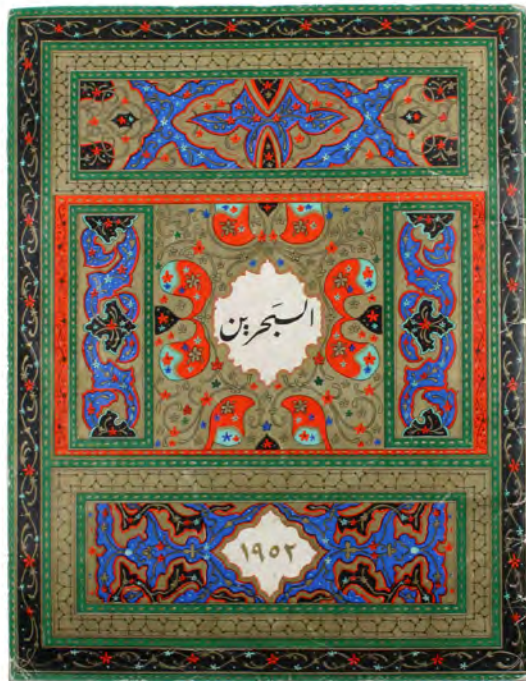 البَحرين
١٩٥٢